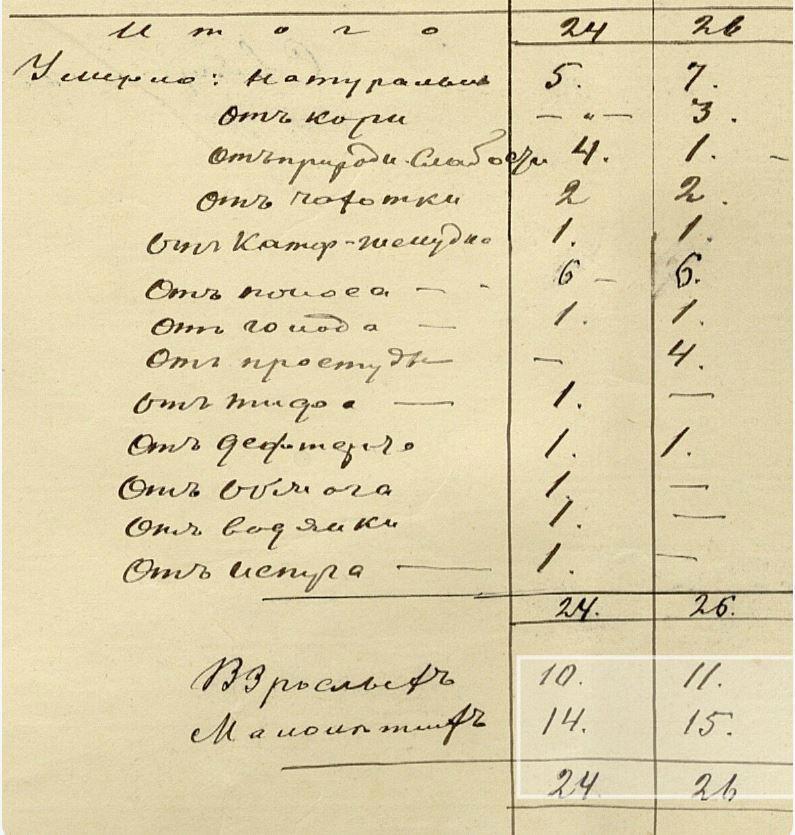 Итого 24 26
Умерло: натурально 5. 7.
Отъ кори — „ — 3.
Отъ природн. слабости 4. 1. -
Отъ чахотки 2 2.
Отъ катар-желудка 1. 1.
Отъ поноса - - 6 - 6.
Отъ голода — 1. 1.
Отъ простуды — — 4.
Отъ тифа — 1. —
Отъ дефтерита 1. 1.
Отъ 1. —
Отъ водянки 1. —
Отъ испуга — 1. —
24. 26.
Взрослыхъ 10. 11.
Малолѣтнихъ 14. 15.
24. 26